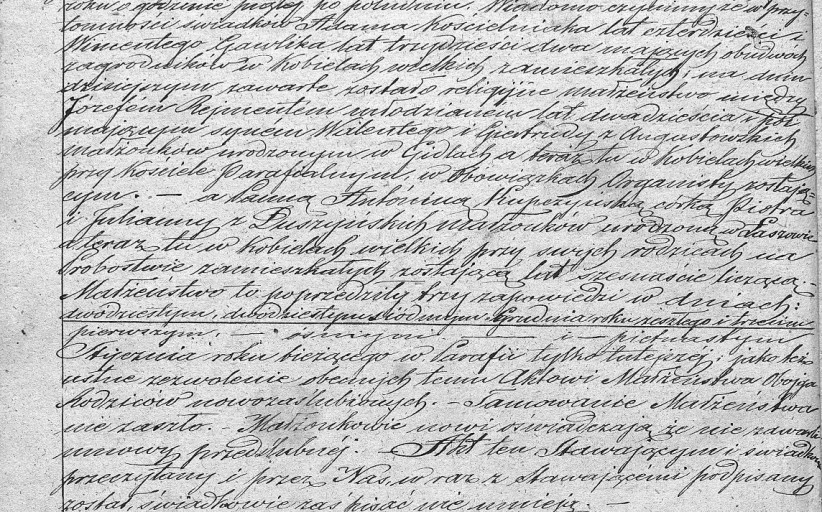 roku o godzinie piątej po południu. Wiadomo czynimy że w przy-
tomności świadków Adama Kościelniaka lat czterdzieści i
Wincentego Gawlika lat trzydzieści dwa mających obudwóch
zagrodników w Kobielach wielkich zamieszkałych; na dniu
dzisiejszym zawarte zostało religijne małżeństwo między
Józefem Rejmentem młodzianem lat dwadzieścia i pół
mającym synem Walentego i Giertrudy z Augustowskich
małżonków urodzonym w Gidlach a teraz tu w Kobielach wielkich
przy Kościele Parafialnym, w Obowiązkach Organisty zostają-
cym. — a Panną Antoniną Kupczyńską córką Piotra
i Julianny z Duszyńskich małżonków urodzoną w
a teraz tu w Kobielach wielkich przy swych rodzicach na
Probostwie zamieszkałych zostającą lat szesnaście liczącą. —
Małżeństwo to poprzedziły trzy zapowiedzi w dniach:
dwódziestym, dwódziestym siódmym Grudnia roku zeszłego i trzecim
pierwszym. — ósmym — i — piętnastym
Stycznia roku bieżącego w Parafii tylko tutejszej; jako też
ustne zezwolenie obecnych temu Aktowi Małżeństwa Obojga
Rodziców nowozaślubionych. — Tamowanie Małżeństwa
nie zaszło. — Małżonkowie nowi oświadczają że nie zawarli
umowy przedślubnéj. — Akt ten Stawającym i świadkom
przeczytany i przez Nas, w raz z Stawającémi podpisany
został, świadkowie zaś pisać nie umieją. —